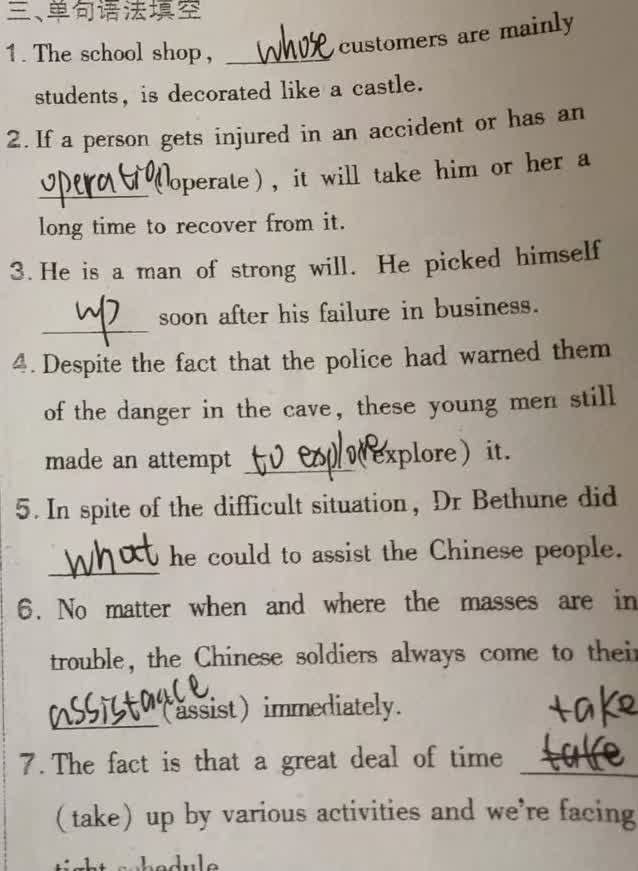 三、单句语法填空
1. The school shop, whose customers are mainly
students, is decorated like a castle.
2. If a person gets injured in an accident or has an
operation (operate), it will take him or her a
long time to recover from it.
3. He is a man of strong will. He picked himself
up soon after his failure in business.
4. Despite the fact that the police had warned them
of the danger in the cave, these young men still
made an attempt to explore (explore) it.
5. In spite of the difficult situation, Dr Bethune did
what he could to assist the Chinese people.
6. No matter when and where the masses are in
trouble, the Chinese soldiers always come to their
assistance (assist) immediately.
take
7. The fact is that a great deal of time take
(take) up by various activities and we're facing
tight schedule